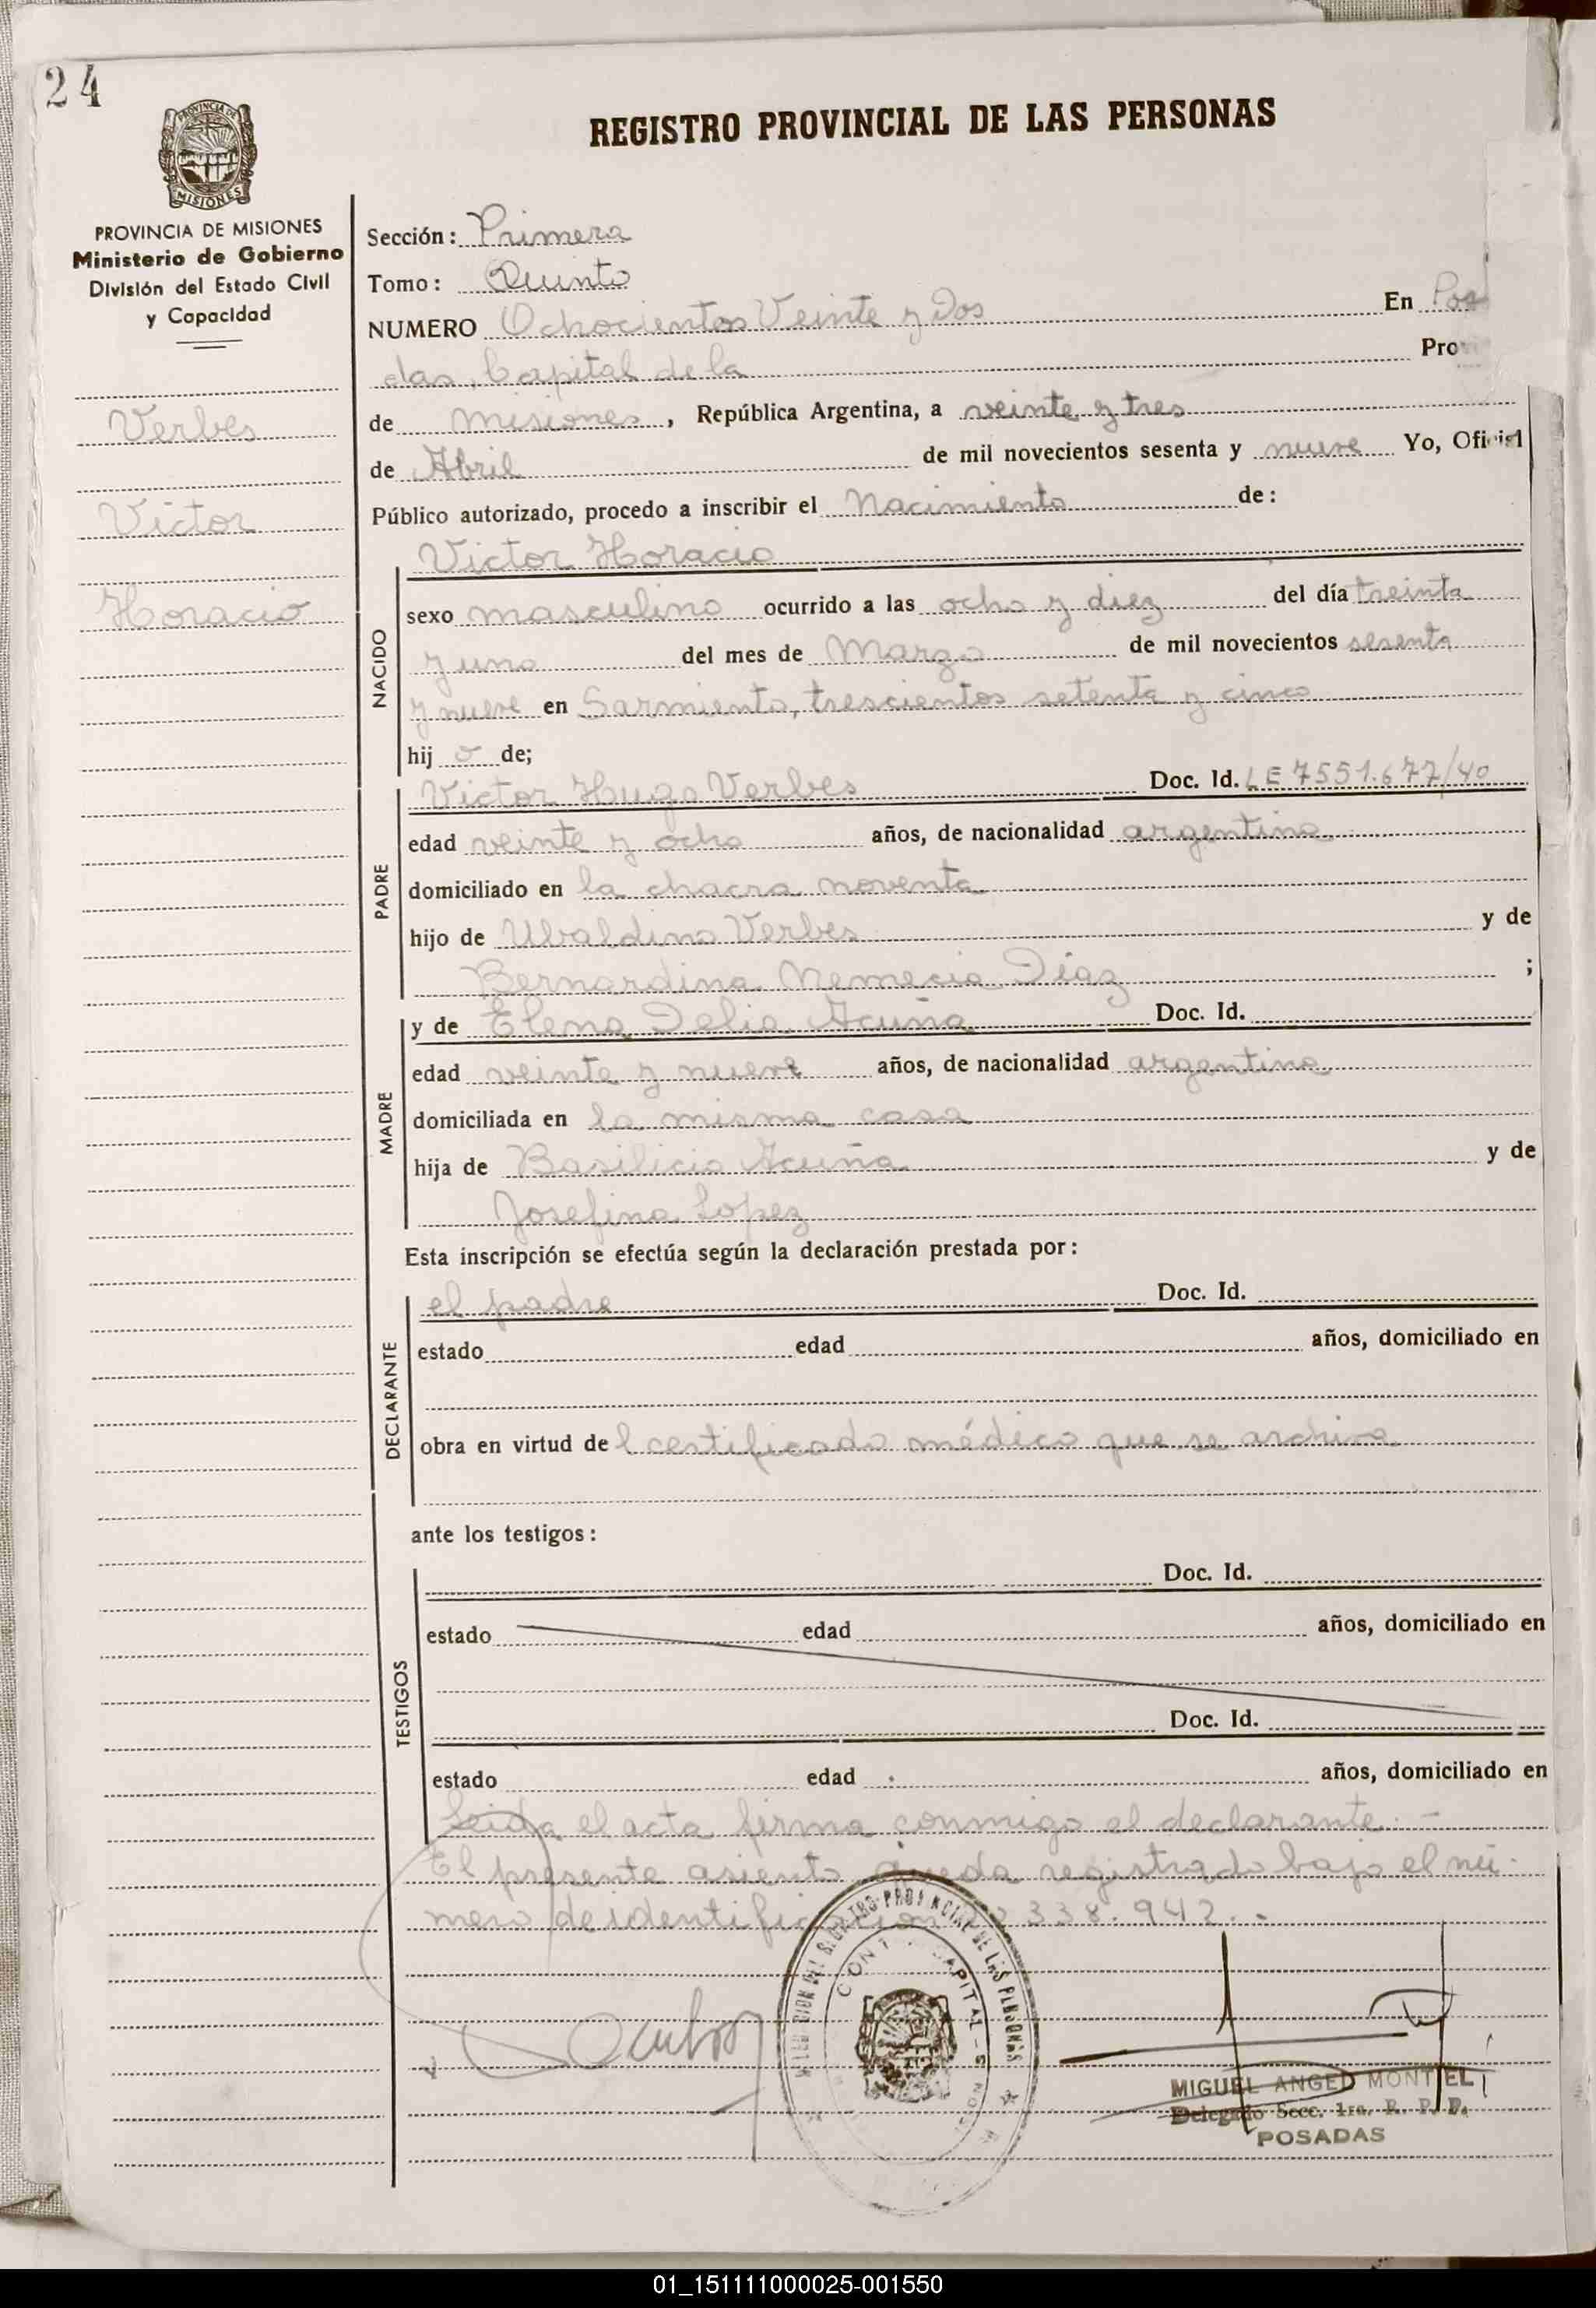 24
REGISTRO PROVINCIAL DE LAS PERSONAS
PROVINCIA DE
MISIONES
PROVINCIA DE MISIONES
Ministerio de Gobierno
División del Estado Civil
y Capacidad
Verbes
Victor
Horacio
Sección: Primera
Tomo: Quinto
NUMERO Ochocientos Veinte y Dos En Pos
das, Capital de la Pro
de Misiones, República Argentina, a veinte y tres
de Abril de mil novecientos sesenta y nueve Yo, Oficial
Público autorizado, procedo a inscribir el Nacimiento de:
NACIDO
Victor Horacio
sexo masculino ocurrido a las ocho y diez del día treinta
y uno del mes de Marzo de mil novecientos sesenta
y nueve en Sarmiento, trescientos setenta y cinco
hij o de;
PADRE
Victor Hugo Verbes Doc. Id. LE 7551.677/40
edad veinte y ocho años, de nacionalidad argentina
domiciliado en la chacra noventa
hijo de Ubaldino Verbes y de
Bernardina Nemecia Díaz ;
MADRE
y de Elena Delia Acuña Doc. Id.
edad veinte y nueve años, de nacionalidad argentina
domiciliada en la misma casa
hija de Basilicio Acuña y de
Josefina Lopez
Esta inscripción se efectúa según la declaración prestada por:
DECLARANTE
el padre Doc. Id.
estado edad años, domiciliado en
obra en virtud de l certificado médico que se archiva
ante los testigos:
TESTIGOS
Doc. Id.
estado edad años, domiciliado en
Doc. Id.
estado edad años, domiciliado en
Leida el acta firma conmigo el declarante.-
El presente asiento queda registrado bajo el nú-
mero de identificación 338.942.-
MIGUEL ANGEL MONTIEL
Delegado Secc. 1ra. R. P. P.
POSADAS
01_151111000025-001550